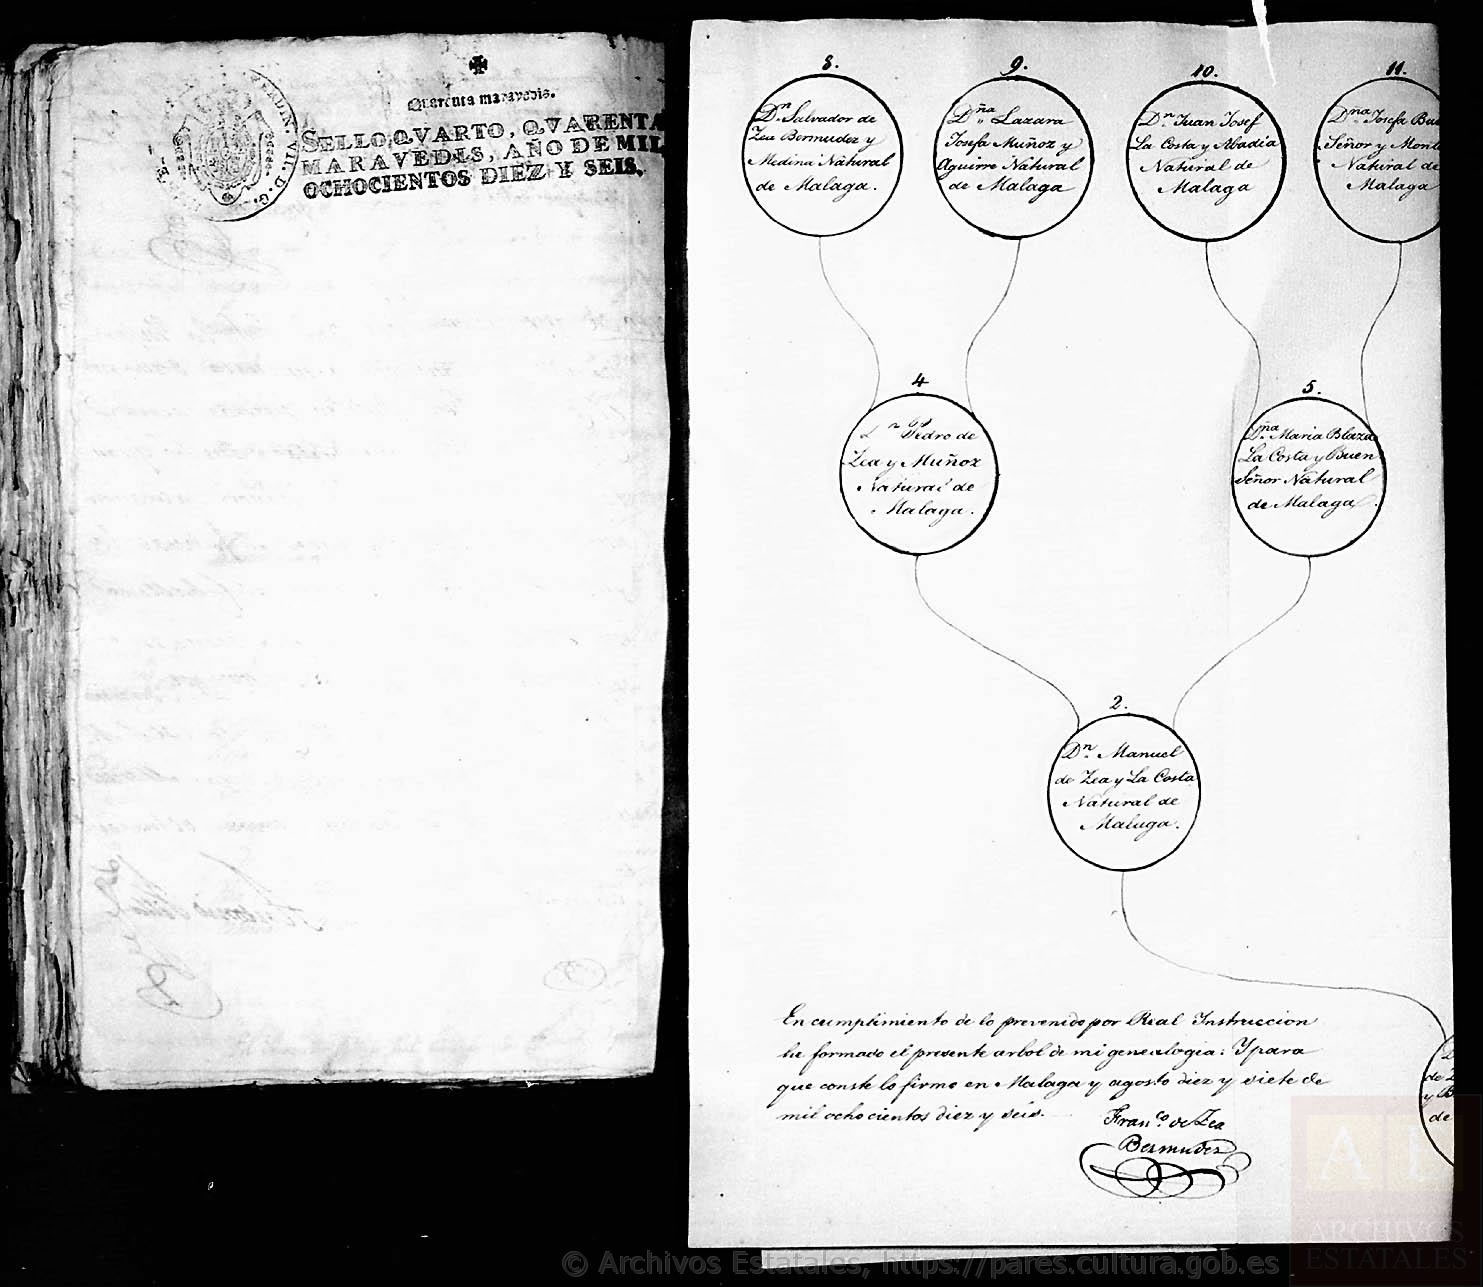 Quarenta maravedis.
SELLO QVARTO, QVARENTA
MARAVEDIS, AÑO DE MIL
OCHOCIENTOS DIEZ Y SEIS.
8.
Dn. Salvador de
Zea Bermudez y
Medina Natural
de Malaga.
9.
Dña. Lazara
Josefa Muñoz y
Aguirre Natural
de Malaga
10.
Dn. Juan Josef
La Costa y Abadia
Natural de
Malaga
11.
Dña. Josefa Bue
Señor y Mont
Natural de
Malaga
4
Dn. Pedro de
Zea y Muñoz
Natural de
Malaga.
5.
Dña. Maria Blaza
La Costa y Buen
Señor Natural
de Malaga.
2.
Dn. Manuel
de Zea y La Costa
Natural de
Malaga.
En cumplimiento de lo prevenido por Real Instruccion
he formado el presente arbol de mi genealogia: Y para
que conste lo firmo en Malaga y agosto diez y siete de
mil ochocientos diez y seis.
Franco. de Zea
Bermudez
de Z
y B
de
ARCHIVOS
ESTATALES
© Archivos Estatales, https://pares.cultura.gob.es